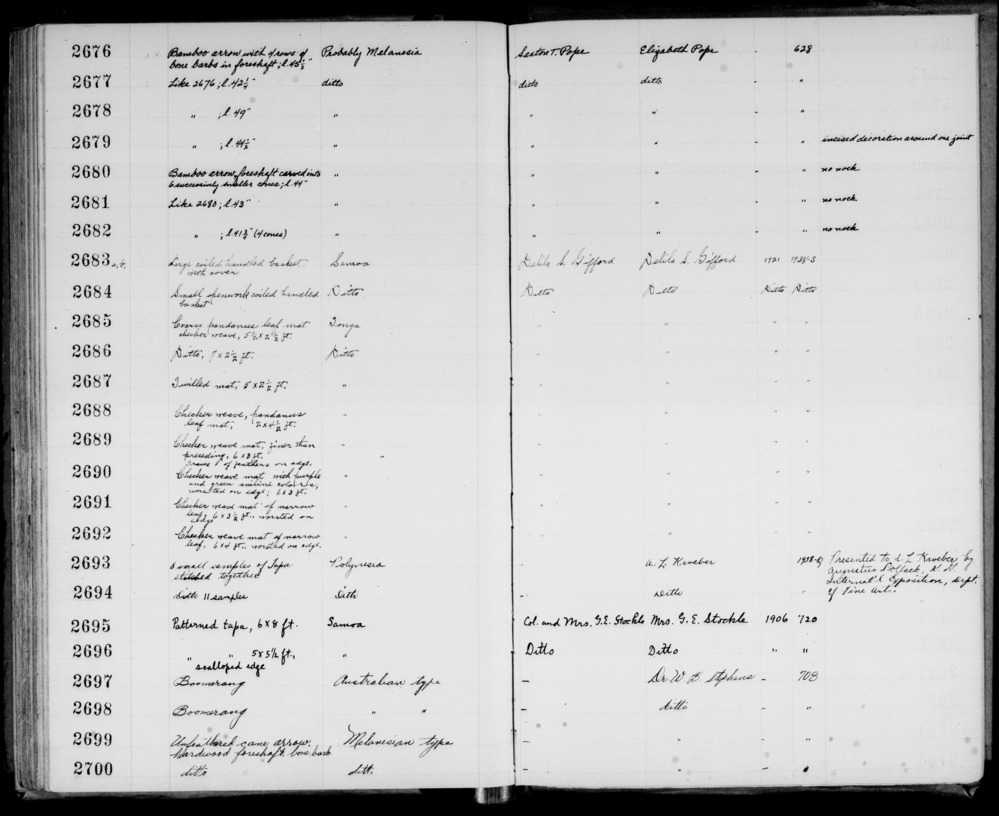 2676 Bamboo arrow with 4 rows of Probably Melanesia Saxton T. Pope Elizabeth Pope - 628
bone barbs in foreshaft; l. 45½"
2677 Like 2676; l. 42¼" ditto ditto ditto - "
2678 " ; l. 49" " " " - "
2679 " ; l. 44½" " " " - " incised decoration around one joint
2680 Bamboo arrow, foreshaft carved into " " " - " no nock
6 successively smaller cones; l. 44"
2681 Like 2680; l. 43" " " " - " no nock
2682 " ; l. 41¾" (4 cones) " " " - " no nock
2683 a,b, Large coiled handled basket Samoa Delila S. Gifford Delila S. Gifford 1921
with cover
2684 Small openwork coiled handled Ditto Ditto Ditto Ditto Ditto
basket
2685 Coarse pandanus leaf mat Tonga " " " "
checker weave, 5½ x 2½ ft.
2686 Ditto, 7 x 2½ ft. Ditto " " " "
2687 Twilled mat, 5 x 2½ ft. " " " " "
2688 Checker weave, pandanus " " " " "
leaf mat, 7 x 4½ ft.
2689 Checker weave mat, finer than " " " " "
preceding, 6 x 3 ft.
Traces of feathers on edge.
2690 Checker weave mat with purple " " " " "
and green aniline colors,
worsted on edge; 6 x 3 ft.
2691 Checker weave mat of narrow " " " " "
leaf, 6 x 3½ ft., worsted on
edge
2692 Checker weave mat of narrow " " " " "
leaf, 6 x 4 ft., worsted on edge.
2693 small samples of Tapa Polynesia A. L. Kroeber Presented to A. L. Kroeber by
stitched together Augustus Pollack,
2694 Ditto 11 samples Ditto - Ditto " Internat'l Exposition, Dept.
of Fine Arts.
2695 Patterned tapa, 6 x 8 ft. Samoa Col. and Mrs. G. E. Stockle Mrs. G. E. Stockle 1906 720
2696 " " 5 x 5½ ft., " Ditto Ditto " "
scalloped edge
2697 Boomerang Australian type - Dr. W. B. Stephens - 708
2698 Boomerang " " - ditto - "
2699 Unfeathered cane arrow, Melanesian type - " - "
hardwood foreshaft, bone barb
2700 ditto ditto - " - "